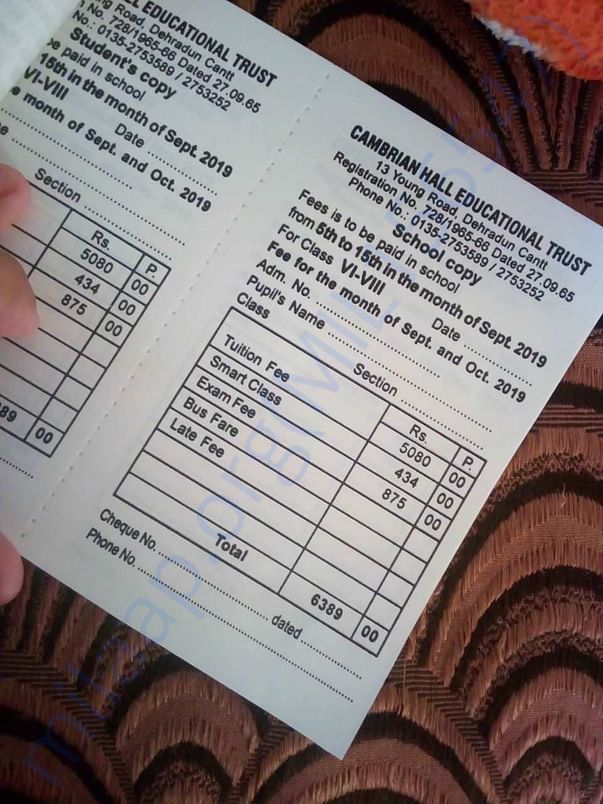 LL EDUCATIONAL TRUST
ng Road, Dehradun Cantt
n No. 728/1965-66 Dated 27.09.65
No.: 0135-2753589 / 2753252
Student's copy
be paid in school
15th in the month of Sept. 2019
VI-VIII Date
e month of Sept. and Oct. 2019
Section
Rs. P.
5080 00
434 00
875 00
89 00
CAMBRIAN HALL EDUCATIONAL TRUST
13 Young Road, Dehradun Cantt
Registration No. 728/1965-66 Dated 27.09.65
Phone No.: 0135-2753589 / 2753252
School copy
Fees is to be paid in school
from 5th to 15th in the month of Sept. 2019
For Class VI-VIII Date
Fee for the month of Sept. and Oct. 2019
Adm. No.
Pupil's Name
Class Section
Rs. P.
Tuition Fee 5080 00
Smart Class 434 00
Exam Fee 875 00
Bus Fare
Late Fee
Total 6389 00
Cheque No. dated
Phone No.